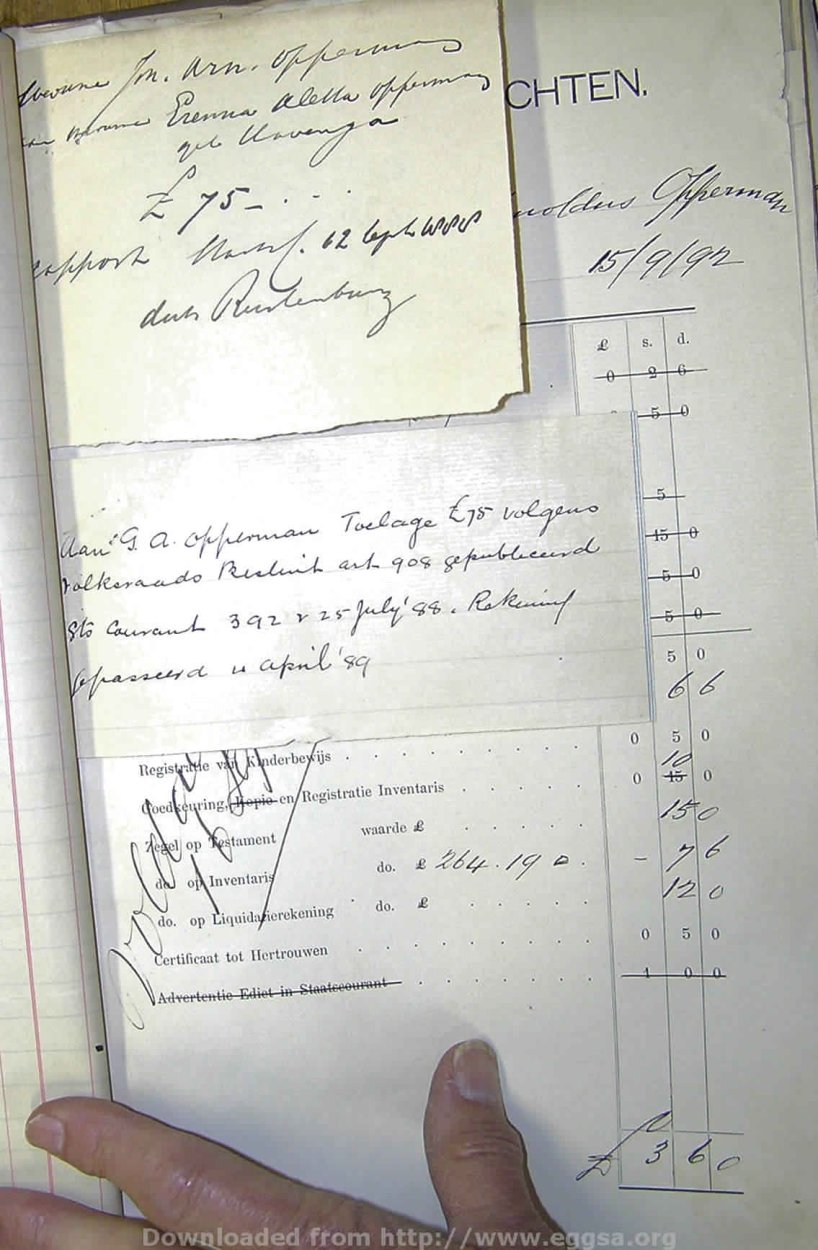 Jn. Arn. Opperman
Aletta Opperman
geb Havenga
£ 75 - . . .
rapport 12 Sept 1888
Rustenburg
CHTEN.
noldus Opperman
15/9/92
£ s. d.
0 2 6
5 0
Aan G. A. Opperman Toelage £75 volgens
Volksraads Besluit art 908 gepubliceerd
Sts Courant 392 v 25 July '88. Rekening
gepasseerd 11 April '89
5
15 0
5 0
5 0
5 0
6 6
Registratie van Kinderbewijs 0 5 0
10
Goedkeuring, Kopie en Registratie Inventaris 0 15 0
Zegel op Testament waarde £ 15 0
do. op Inventaris do. £ 264.19 0 - 7 6
do. op Liquidatierekening do. £ 12 0
Certificaat tot Hertrouwen 0 5 0
Advertentie Edict in Staatscourant 1 0 0
£ 3 6 0
Downloaded from http://www.eggsa.org